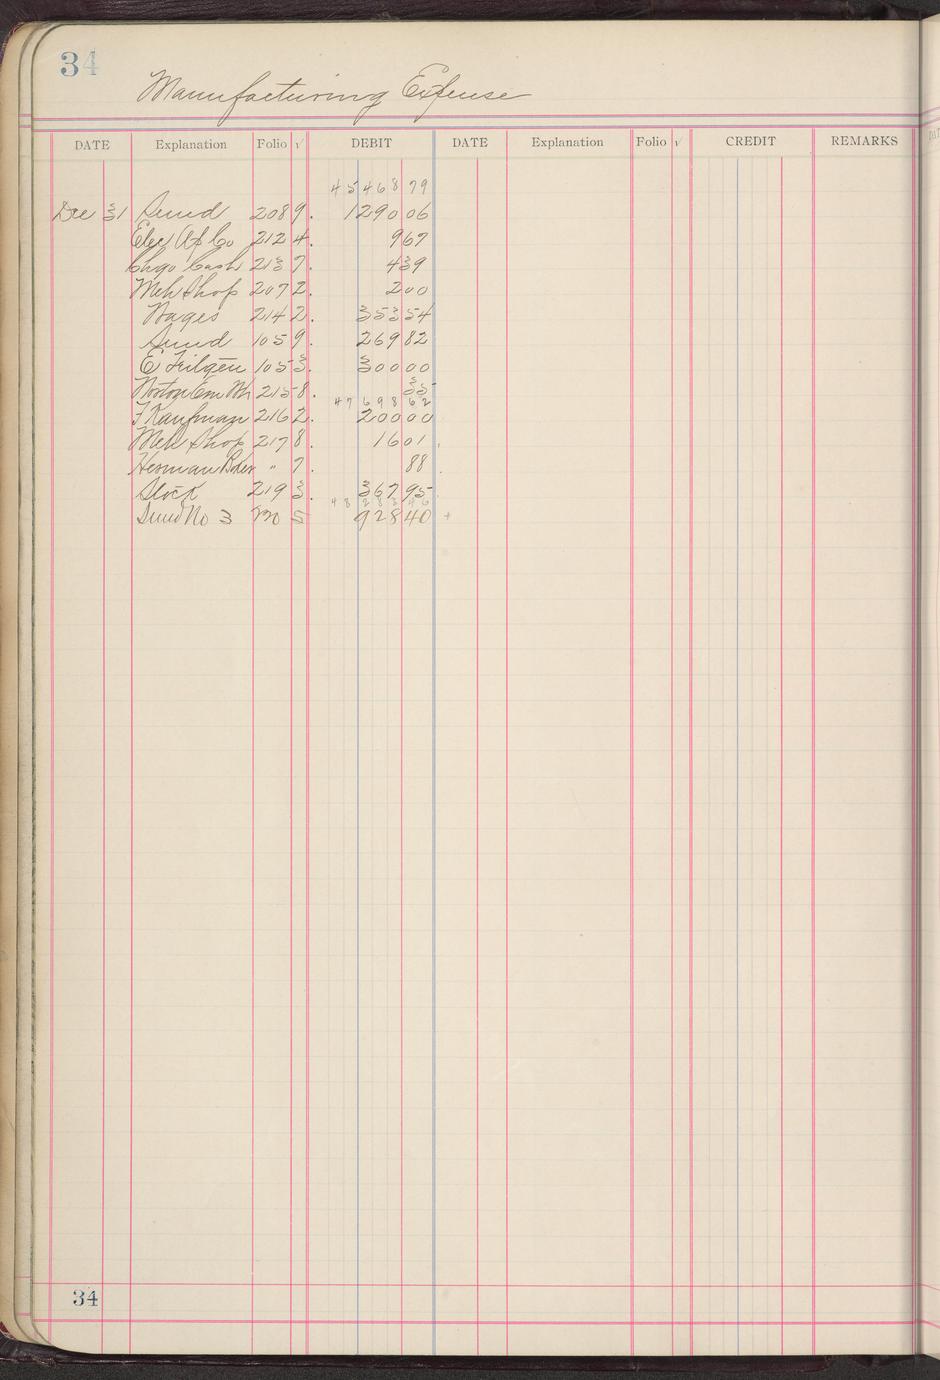 34
Manufacturing Expense
DATE Explanation Folio √ DEBIT DATE Explanation Folio √ CREDIT REMARKS
45468 79
Dec 31 Sund 2089. 1290 06
Elec Ap Co 2124. 9 67
Chgo Cash 2137. 4 39
Meh Shop 2072. 2 00
Wages 2142. 353 54
Sund 1059. 269 82
E Filgen 1053. 300 00
Norton Em Wh 2158. 35
47698 62
F Kaufman 2162. 200 00
Meh Shop 2178. 16 01
Herman " 7. 88
Stock 2193. 367 95
48283 46
Sund No 3 5 928 40
34